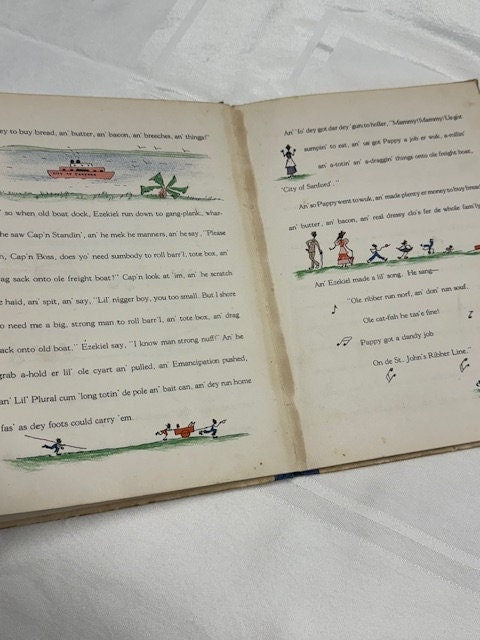 ey to buy bread, an' butter, an' bacon, an' breeches, an' things!"
CITY OF SANFORD
so when old boat dock, Ezekiel run down to gang-plank, whar-
he saw Cap'n Standin', an' he mek he manners, an' he say, "Please
n, Cap'n Boss, does yo' need sumbody to roll barr'l, tote box, an'
rag sack onto ole freight boat?" Cap'n look at 'im, an' he scratch
e haid, an' spit, an' say, "Lil' nigger boy, you too small. But I shore
o need me a big, strong man to roll barr'l, an' tote box, an' drag
ack onto old boat." Ezekiel say, "I know man strong nuff!" An' he
grab a-hold er lil' ole cyart an' pulled, an' Emancipation pushed,
an' Lil' Plural cum 'long totin' de pole an' bait can, an' dey run home
fas' as dey foots could carry 'em.
An' 'fo' dey got dar dey' gun to holler, "Mammy! Mammy! Us got
sumpin' to eat, an' us got Pappy a job er wuk, a-rollin'
an' a-totin' an' a-draggin' things onto ole freight boat,
'City of Sanford'."
An' so Pappy went to wuk, an' made plenty er money to buy bread
an' butter, an' bacon, an' real dressy clo's fer de whole fam'ly
An' Ezekiel made a lil' song. He sang—
"Ole ribber run norf, an' don' run souf.
Ole cat-fish he tas'e fine!
Pappy got a dandy job
On de St. John's Ribber Line."